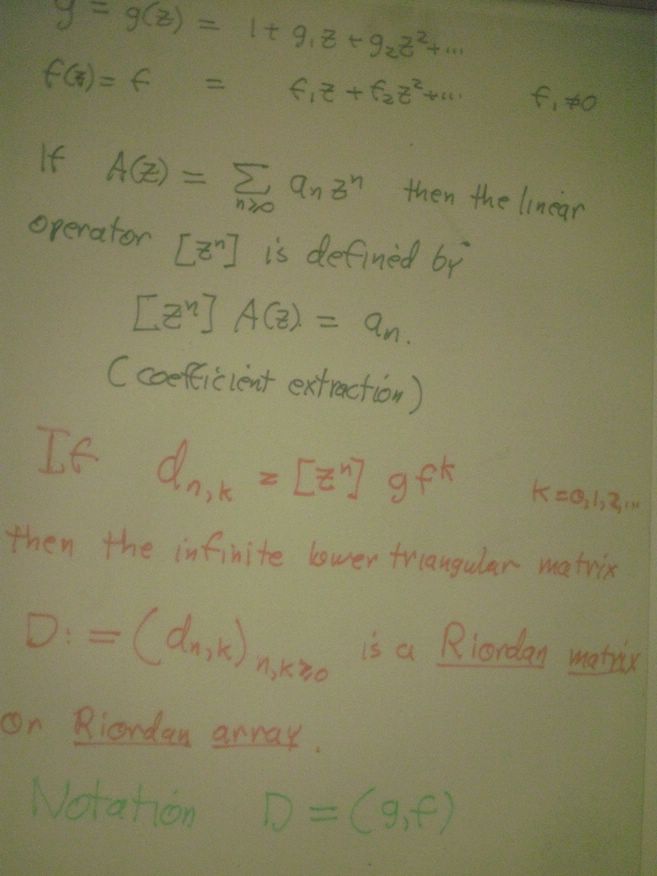 g = g(z) = 1 + g₁z + g₂z² + ...
f(z) = f = f₁z + f₂z² + ... f₁ ≠ 0
If A(z) = Σ n≥0 aₙzⁿ then the linear
operator [zⁿ] is defined by
[zⁿ] A(z) = aₙ.
(coefficient extraction)
If dₙ,ₖ = [zⁿ] gfᵏ k=0,1,2,...
then the infinite lower triangular matrix
D := (dₙ,ₖ)ₙ,ₖ≥₀ is a Riordan matrix
or Riordan array.
Notation D = (g,f)